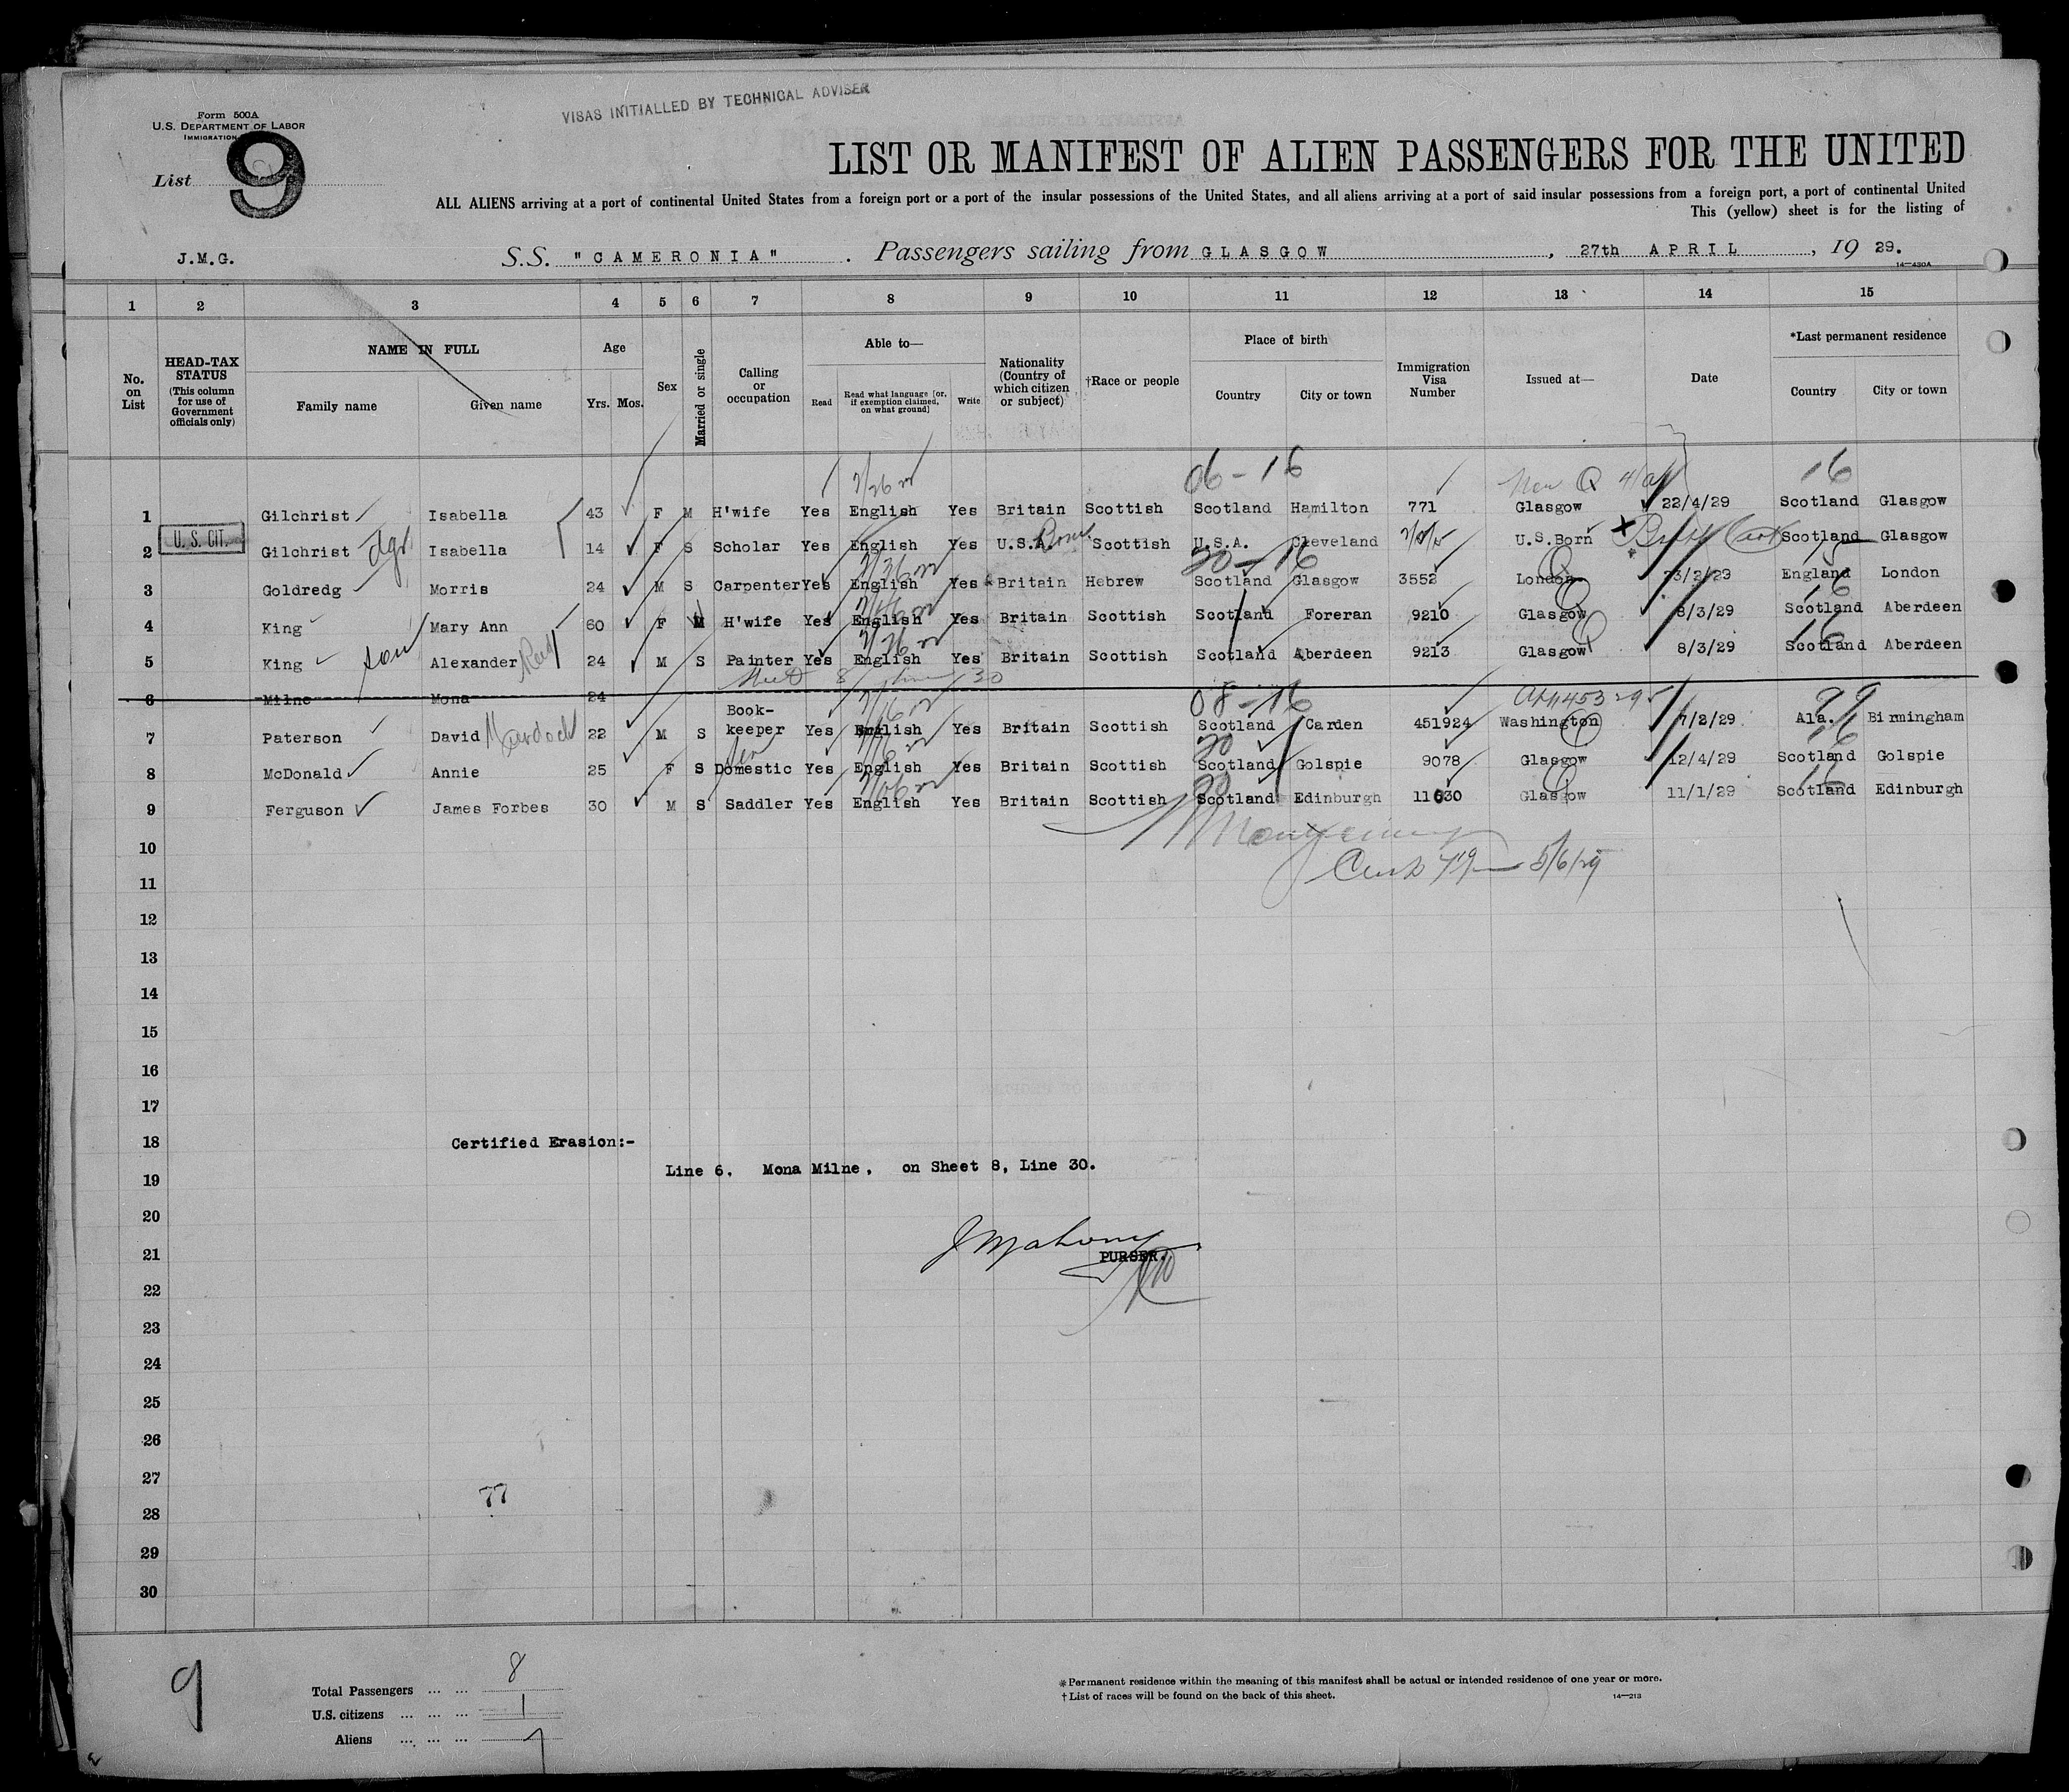 Form 500A
U.S. DEPARTMENT OF LABOR
IMMIGRATION
VISAS INITIALLED BY TECHNICAL ADVISER
List 9
LIST OR MANIFEST OF ALIEN PASSENGERS FOR THE UNITED
ALL ALIENS arriving at a port of continental United States from a foreign port or a port of the insular possessions of the United States, and all aliens arriving at a port of said insular possessions from a foreign port, a port of continental United
This (yellow) sheet is for the listing of
J.M.G.
S.S. "CAMERONIA". Passengers sailing from GLASGOW, 27th APRIL, 19 29.
14—430A
1 2 3 4 5 6 7 8 9 10 11 12 13 14 15
No. on List
HEAD-TAX STATUS (This column for use of Government officials only)
NAME IN FULL
Family name Given name
Age
Yrs. Mos.
Sex
Married or single
Calling or occupation
Able to—
Read Read what language [or, if exemption claimed, on what ground] Write
Nationality (Country of which citizen or subject)
†Race or people
Place of birth
Country City or town
Immigration Visa Number
Issued at—
Date
*Last permanent residence
Country City or town
06-16 16
1 Gilchrist Isabella 43 F M H'wife Yes English Yes Britain Scottish Scotland Hamilton 771 Glasgow 22/4/29 Scotland Glasgow
2 U.S. CIT. Gilchrist dgr Isabella 14 F S Scholar Yes English Yes U.S.A. Born Scottish U.S.A. Cleveland U.S.Born Scotland Glasgow
20-16 15
3 Goldredg Morris 24 M S Carpenter Yes English Yes Britain Hebrew Scotland Glasgow 3552 London 23/2/29 England London
16
4 King Mary Ann 60 F M H'wife Yes English Yes Britain Scottish Scotland Foreran 9210 Glasgow 8/3/29 Scotland Aberdeen
16
5 King son Alexander Reid 24 M S Painter Yes English Yes Britain Scottish Scotland Aberdeen 9213 Glasgow 8/3/29 Scotland Aberdeen
Sheet 8/ line 30
6 Milne Mona 24
08-16 99
7 Paterson David Murdoch 22 M S Book-keeper Yes English Yes Britain Scottish Scotland Carden 451924 Washington 7/2/29 Ala. Birmingham
20 16
8 McDonald Annie 25 F S Domestic Yes English Yes Britain Scottish Scotland Golspie 9078 Glasgow 12/4/29 Scotland Golspie
20 16
9 Ferguson James Forbes 30 M S Saddler Yes English Yes Britain Scottish Scotland Edinburgh 11030 Glasgow 11/1/29 Scotland Edinburgh
10
5/6/29
11
12
13
14
15
16
17
18 Certified Erasion:-
19 Line 6. Mona Milne, on Sheet 8, Line 30.
20
J Mahony
21 PURSER.
22
23
24
25
26
27
77
28
29
30
9
Total Passengers ... ... 8
U.S. citizens ... ... ... 1
Aliens ... ... ... 7
* Permanent residence within the meaning of this manifest shall be actual or intended residence of one year or more.
† List of races will be found on the back of this sheet.
14—213